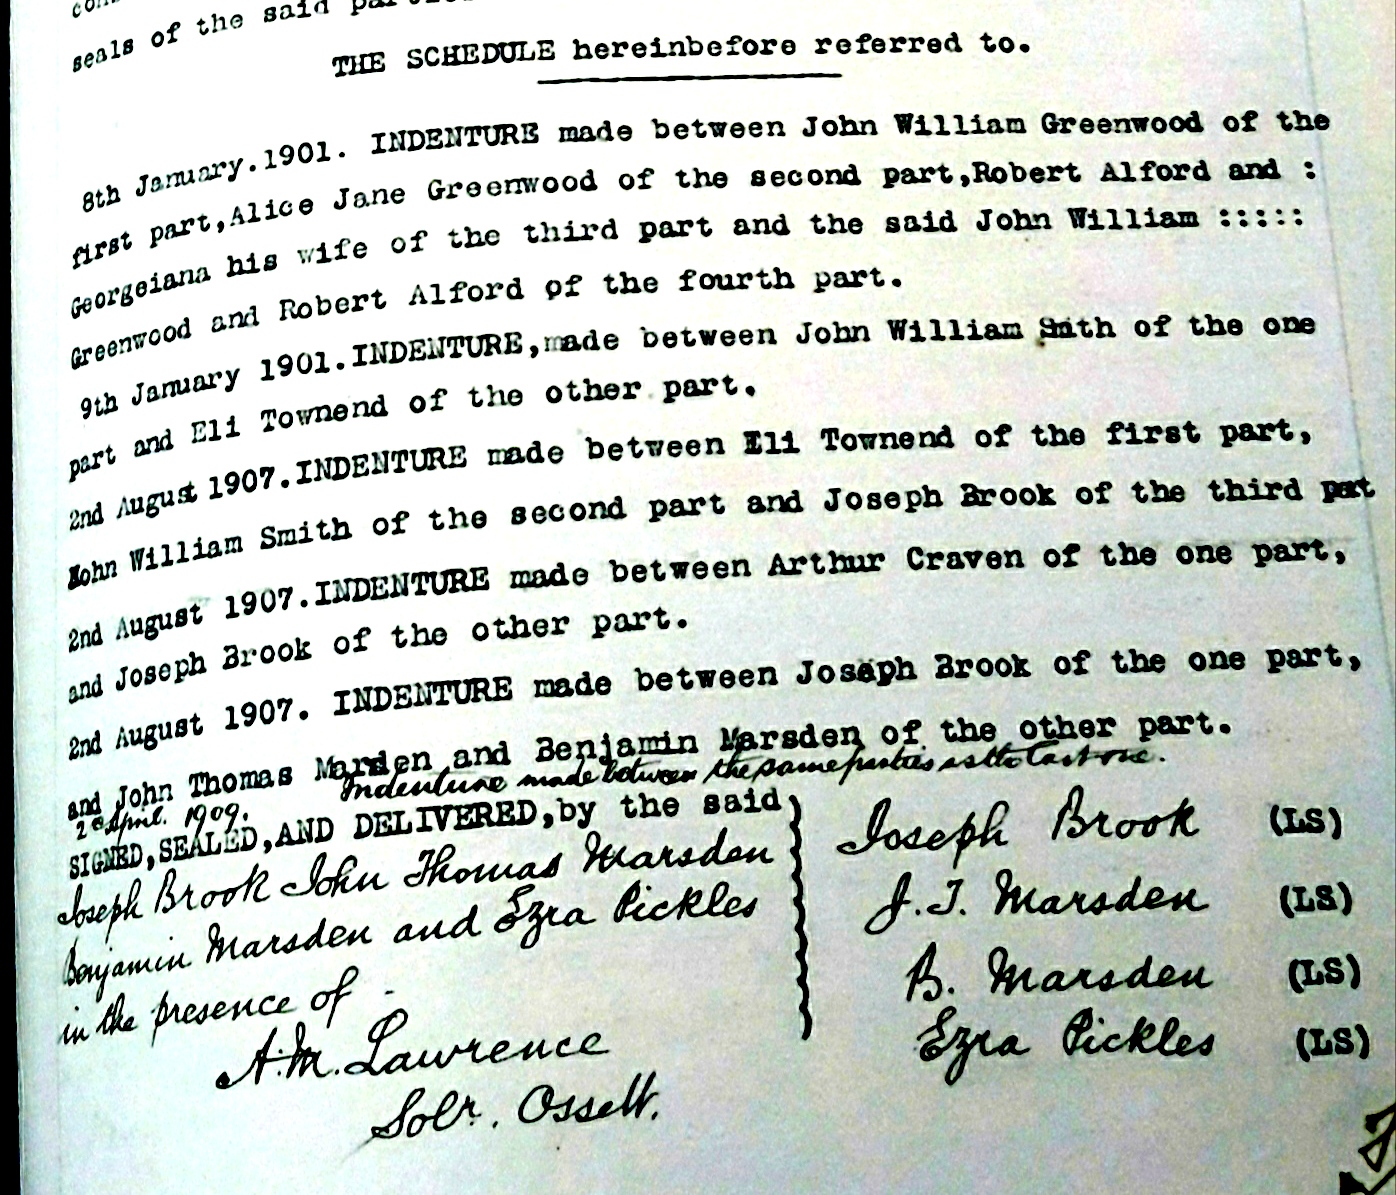 seals of the said
THE SCHEDULE hereinbefore referred to.
8th January.1901. INDENTURE made between John William Greenwood of the
first part,Alice Jane Greenwood of the second part,Robert Alford and :
Georgeiana his wife of the third part and the said John William :::::
Greenwood and Robert Alford of the fourth part.
9th January 1901.INDENTURE,made between John William Smith of the one
part and Eli Townend of the other part.
2nd August 1907.INDENTURE made between Eli Townend of the first part,
John William Smith of the second part and Joseph Brook of the third part
2nd August 1907.INDENTURE made between Arthur Craven of the one part,
and Joseph Brook of the other part.
2nd August 1907. INDENTURE made between Joseph Brook of the one part,
and John Thomas Marsden and Benjamin Marsden of the other part.
2nd April. 1909. Indenture made between the same parties as the last one.
SIGNED,SEALED,AND DELIVERED,by the said
Joseph Brook John Thomas Marsden
Benjamin Marsden and Ezra Pickles
in the presence of -
A.M. Lawrence
Solr. Ossett.
Joseph Brook (LS)
J.T. Marsden (LS)
B. Marsden (LS)
Ezra Pickles (LS)